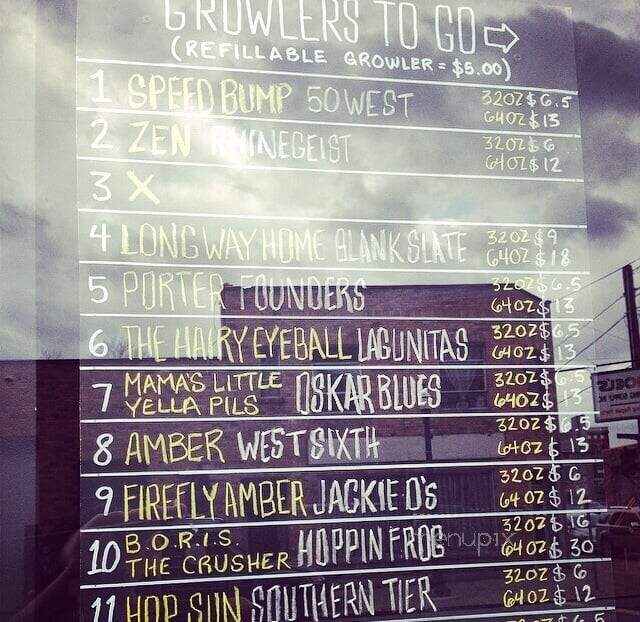 GROWLERS TO GO
(REFILLABLE GROWLER = $5.00)
1 SPEED BUMP 50 WEST 32OZ $6.5
64OZ $13
2 ZEN RHINEGEIST 32OZ $6
64OZ $12
3 X
4 LONG WAY HOME BLANK SLATE 32OZ $9
64OZ $18
5 PORTER FOUNDERS 32OZ $6.5
64OZ $13
6 THE HAIRY EYEBALL LAGUNITAS 32OZ $6.5
64OZ $13
7 MAMA'S LITTLE YELLA PILS OSKAR BLUES 32OZ $6.5
64OZ $13
8 AMBER WEST SIXTH 32OZ $6.5
64OZ $13
9 FIREFLY AMBER JACKIE O'S 32OZ $6
64OZ $12
10 B.O.R.I.S. THE CRUSHER HOPPIN FROG 32OZ $16
64OZ $30
11 HOP SUN SOUTHERN TIER 32OZ $6
64OZ $12
menupix